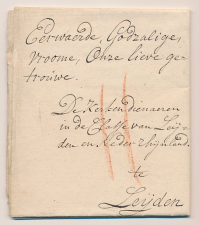 Eerwaerde, Godzalige,
vroome, Onze lieve ge-
trouwe.
De Kerkendienaeren
in de Classe van Leÿ-
den en Neder Rhynland.
te
Leÿden